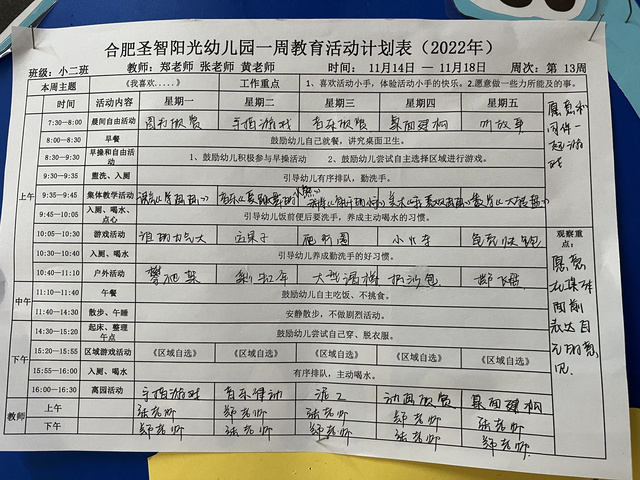 合肥圣智阳光幼儿园一周教育活动计划表（2022年）
班级：小二班 教师：郑老师 张老师 黄老师 时间： 11月14日— 11月18日 周次：第 13周
本周主题 《我喜欢.....》 工作重点 1、喜欢活动小手，体验活动小手的快乐。2.愿意做一些力所能及的事。
时间 活动内容 星期一 星期二 星期三 星期四 星期五
7:30—8:00 晨间自由活动 图书欣赏 手指游戏 音乐欣赏 桌面建构
8:00—8:30 早餐 鼓励幼儿自己就餐，讲究桌面卫生。
8:30—9:30 早操和自由活动 1、鼓励幼儿积极参与早操活动 2、鼓励幼儿尝试自主选择区域进行游戏。
9:30—9:35 盥洗、入厕 引导幼儿有序排队，勤洗手。
上午
9:35—9:45 集体教学活动
9:45—10:05 入厕、喝水、点心 引导幼儿饭前便后要洗手，养成主动喝水的习惯。
10:05—10:30 游戏活动 谁的力气大 小火车
10:30—10:40 入厕、喝水 引导幼儿养成勤洗手的好习惯。
10:40—11:10 户外活动 攀爬架 大型滑梯 扔沙包
中午
11:10—11:40 午餐 鼓励幼儿自主吃饭、不挑食。
11:40—14:30 散步、午睡 安静散步，不做剧烈活动。
14:30—15:20 起床、整理午点 鼓励幼儿尝试自己穿、脱衣服。
下午
15:20—15:55 区域游戏活动 《区域自选》 《区域自选》 《区域自选》 《区域自选》 《区域自选》
15:55—16:00 入厕、喝水 有序排队，主动喝水。
16:00—16:30 离园活动 手指游戏 音乐律动 泥工 动画欣赏 桌面建构
教师
上午 张老师 郑老师 张老师 郑老师 张老师
下午 郑老师 张老师 郑老师 张老师 郑老师
愿意和
同伴一
起游
戏
观察重点：
愿意
在集体
面前
表达自
己的意
见